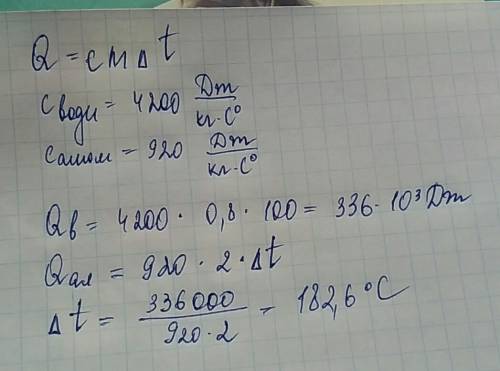 Q = cm∆t
cводи = 4200 Дж/кг·C°
cалюм = 920 Дж/кг·C°
Qв = 4200 · 0,8 · 100 = 336 · 10³ Дж
Qал = 920 · 2 · ∆t
∆t = 336000/920·2 = 182,6°C